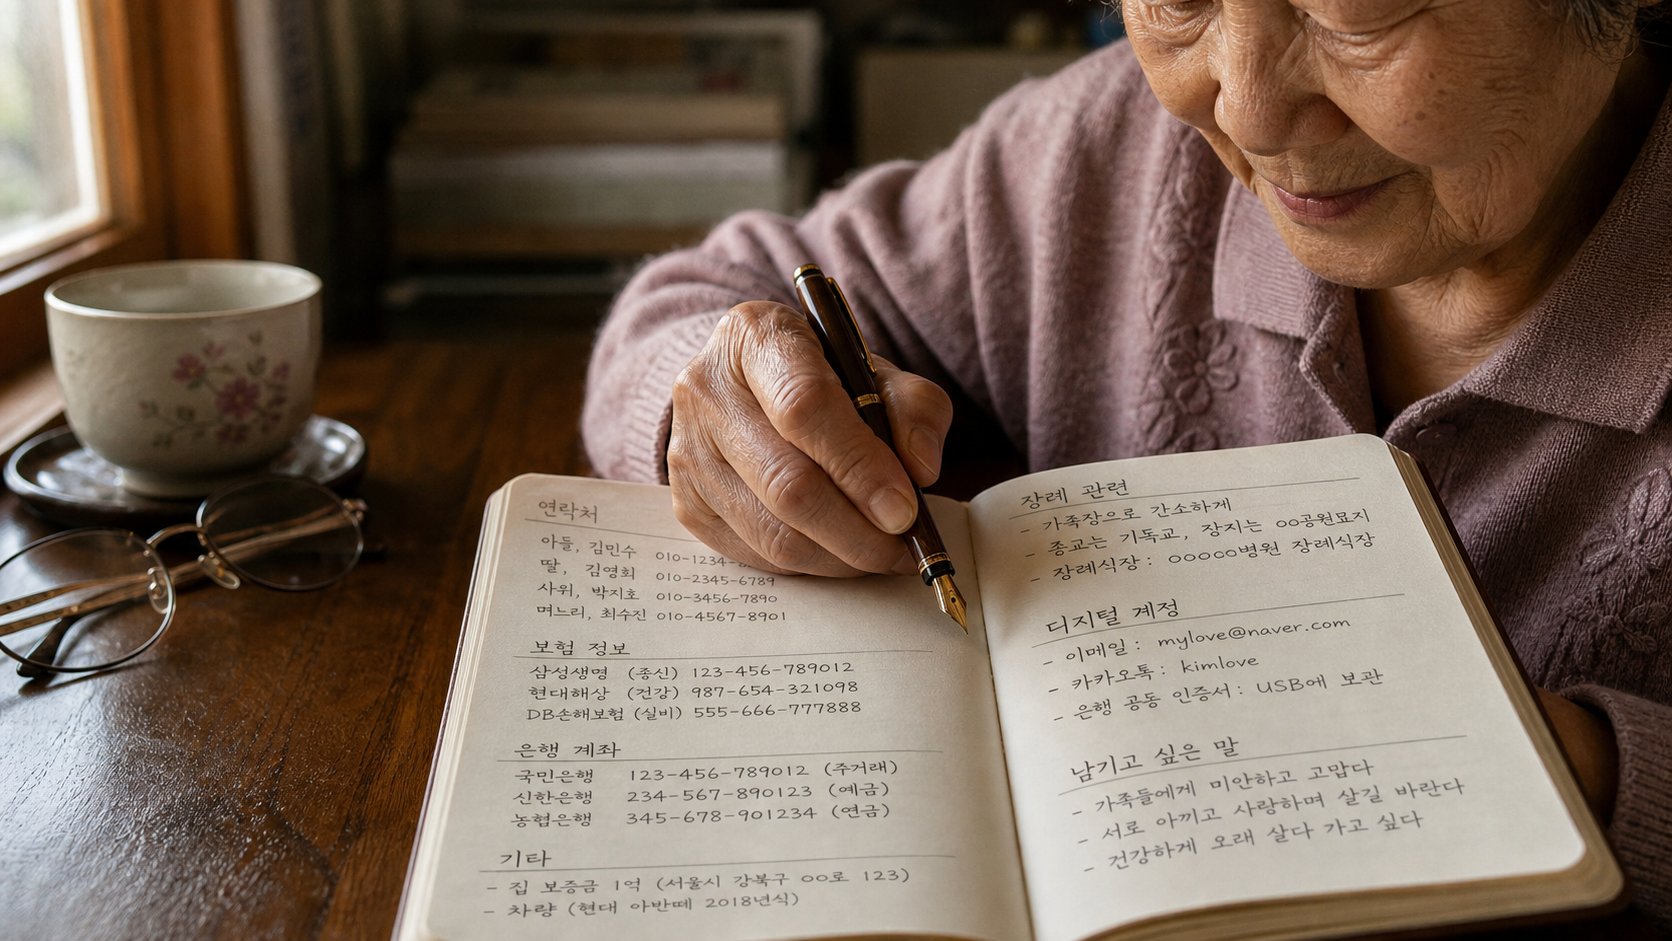 연락처
아들, 김민수 010-1234-
딸, 김영희 010-2345-6789
사위, 박지호 010-3456-7890
며느리, 최수진 010-4567-8901
보험 정보
삼성생명 (종신) 123-456-789012
현대해상 (건강) 987-654-321098
DB손해보험 (실비) 555-666-777888
은행 계좌
국민은행 123-456-789012 (주거래)
신한은행 234-567-890123 (예금)
농협은행 345-678-901234 (연금)
기타
- 집 보증금 1억 (서울시 강북구 OO로 123)
- 차량 (현대 아반떼 2018년식)
장례 관련
- 가족장으로 간소하게
- 종교는 기독교, 장지는 OO공원묘지
- 장례식장 : OOOOO병원 장례식장
디지털 계정
- 이메일 : mylove@naver.com
- 카카오톡 : kimlove
- 은행 공동 인증서 : USB에 보관
남기고 싶은 말
- 가족들에게 미안하고 고맙다
- 서로 아끼고 사랑하며 살길 바란다
- 건강하게 오래 살다 가고 싶다